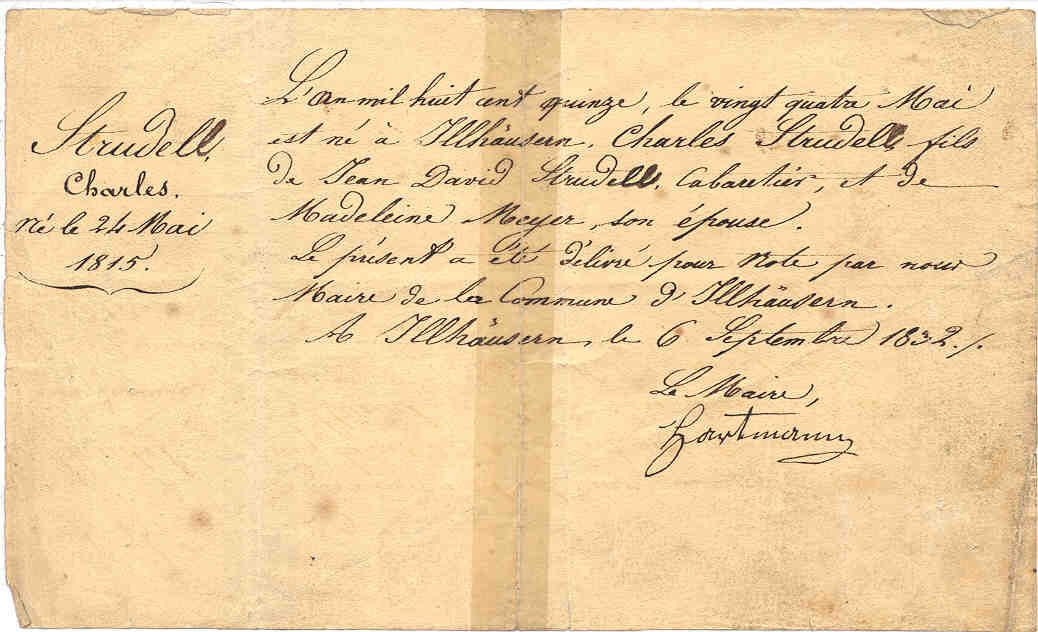 Strudell,
Charles.
né le 24 Mai
1815.
L'an mil huit cent quinze, le vingt quatre Mai
est né à Illhäusern, Charles Strudell, fils
de Jean David Strudell, Cabaretier, et de
Madeleine Meyer, son épouse.
Le présent a été délivré pour Note par nous
Maire de la Commune d'Illhäusern.
A Illhäusern, le 6 Septembre 1832./.
Le Maire,
Hartmann